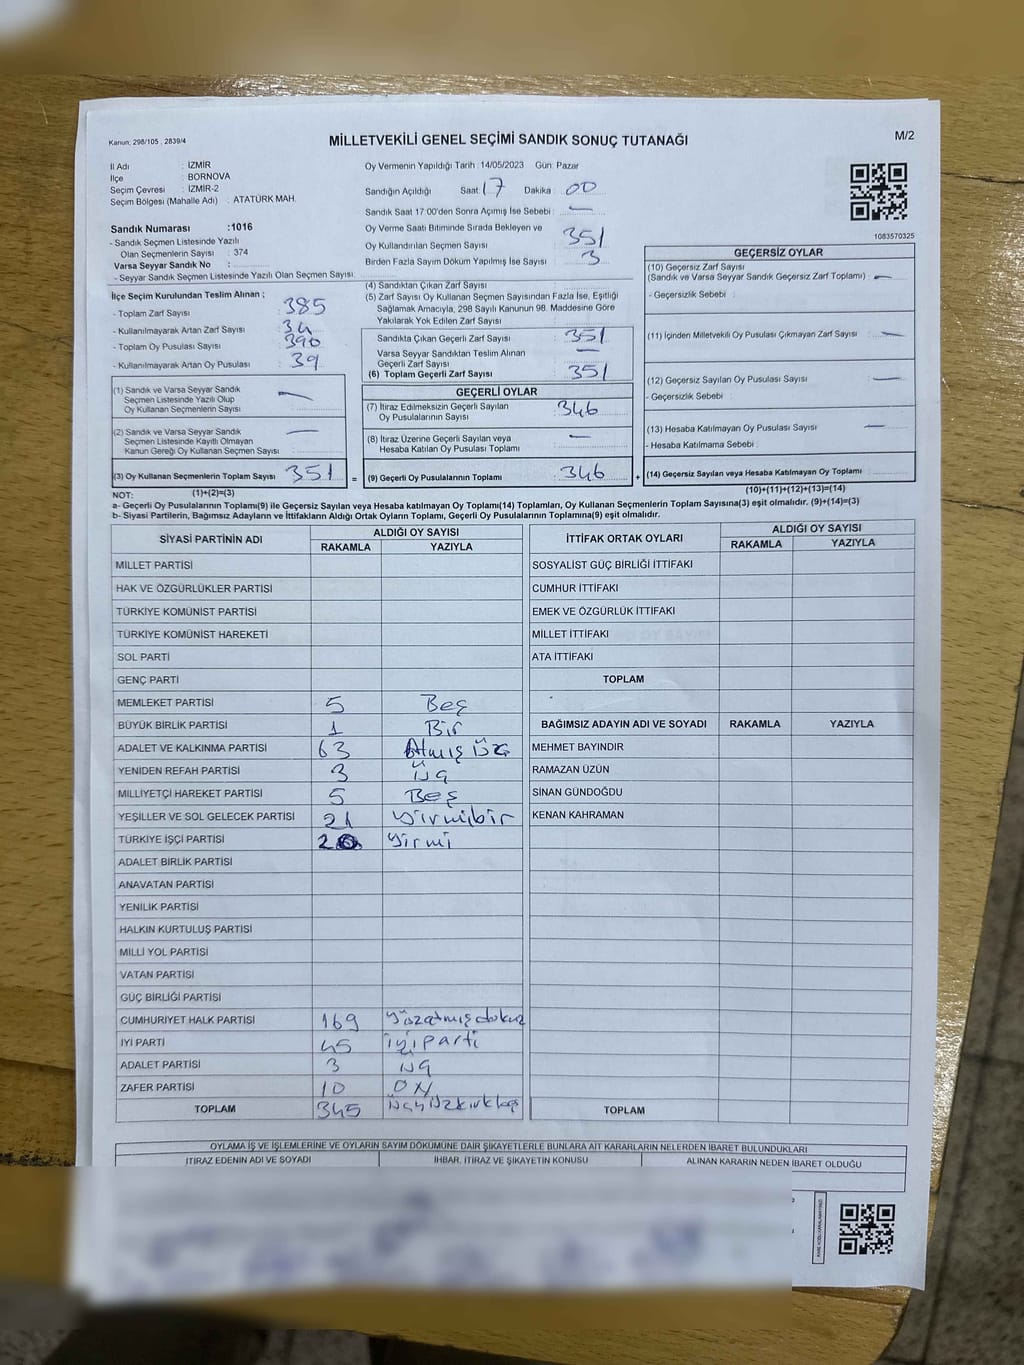 Kanun; 298/105 , 2839/4
MİLLETVEKİLİ GENEL SEÇİMİ SANDIK SONUÇ TUTANAĞI
M/2
İl Adı : İZMİR
İlçe : BORNOVA
Seçim Çevresi : İZMİR-2
Seçim Bölgesi (Mahalle Adı) : ATATÜRK MAH.
Sandık Numarası :1016
- Sandık Seçmen Listesinde Yazılı
Olan Seçmenlerin Sayısı : 374
Varsa Seyyar Sandık No :
- Seyyar Sandık Seçmen Listesinde Yazılı Olan Seçmen Sayısı:
Oy Vermenin Yapıldığı Tarih : 14/05/2023 Gün: Pazar
Sandığın Açıldığı Saat: 17 Dakika : 00
Sandık Saat 17:00'den Sonra Açımış İse Sebebi : —
Oy Verme Saati Bitiminde Sırada Bekleyen ve
Oy Kullandırılan Seçmen Sayısı : 351
Birden Fazla Sayım Döküm Yapılmış İse Sayısı : 3
1083570325
İlçe Seçim Kurulundan Teslim Alınan ;
- Toplam Zarf Sayısı : 385
- Kullanılmayarak Artan Zarf Sayısı : 34
- Toplam Oy Pusulası Sayısı : 390
- Kullanılmayarak Artan Oy Pusulası : 39
(1) Sandık ve Varsa Seyyar Sandık
Seçmen Listesinde Yazılı Olup
Oy Kullanan Seçmenlerin Sayısı : —
(2) Sandık ve Varsa Seyyar Sandık
Seçmen Listesinde Kayıtlı Olmayan
Kanun Gereği Oy Kullanan Seçmen Sayısı : —
(3) Oy Kullanan Seçmenlerin Toplam Sayısı : 351
(1)+(2)=(3)
(4) Sandıktan Çıkan Zarf Sayısı :
(5) Zarf Sayısı Oy Kullanan Seçmen Sayısından Fazla İse, Eşitliği
Sağlamak Amacıyla, 298 Sayılı Kanunun 98. Maddesine Göre
Yakılarak Yok Edilen Zarf Sayısı :
Sandıkta Çıkan Geçerli Zarf Sayısı : 351
Varsa Seyyar Sandıktan Teslim Alınan
Geçerli Zarf Sayısı : —
(6) Toplam Geçerli Zarf Sayısı : 351
GEÇERLİ OYLAR
(7) İtiraz Edilmeksizin Geçerli Sayılan
Oy Pusulalarının Sayısı : 346
(8) İtiraz Üzerine Geçerli Sayılan veya
Hesaba Katılan Oy Pusulası Toplamı : —
= (9) Geçerli Oy Pusulalarının Toplamı : 346
GEÇERSİZ OYLAR
(10) Geçersiz Zarf Sayısı
(Sandık ve Varsa Seyyar Sandık Geçersiz Zarf Toplamı) : —
- Geçersizlik Sebebi :
(11) İçinden Milletvekili Oy Pusulası Çıkmayan Zarf Sayısı : —
(12) Geçersiz Sayılan Oy Pusulası Sayısı : —
- Geçersizlik Sebebi :
(13) Hesaba Katılmayan Oy Pusulası Sayısı : —
- Hesaba Katılmama Sebebi :
+ (14) Geçersiz Sayılan veya Hesaba Katılmayan Oy Toplamı :
(10)+(11)+(12)+(13)=(14)
NOT:
a- Geçerli Oy Pusulalarının Toplamı(9) ile Geçersiz Sayılan veya Hesaba katılmayan Oy Toplamı(14) Toplamları, Oy Kullanan Seçmenlerin Toplam Sayısına(3) eşit olmalıdır. (9)+(14)=(3)
b- Siyasi Partilerin, Bağımsız Adayların ve İttifakların Aldığı Ortak Oyların Toplamı, Geçerli Oy Pusulalarının Toplamına(9) eşit olmalıdır.
SİYASİ PARTİNİN ADI ALDIĞI OY SAYISI
RAKAMLA YAZIYLA
MİLLET PARTİSİ
HAK VE ÖZGÜRLÜKLER PARTİSİ
TÜRKİYE KOMÜNİST PARTİSİ
TÜRKİYE KOMÜNİST HAREKETİ
SOL PARTİ
GENÇ PARTİ
MEMLEKET PARTİSİ 5 Beş
BÜYÜK BİRLİK PARTİSİ 1 Bir
ADALET VE KALKINMA PARTİSİ 63 Atmış Üç
YENİDEN REFAH PARTİSİ 3 Üç
MİLLİYETÇİ HAREKET PARTİSİ 5 Beş
YEŞİLLER VE SOL GELECEK PARTİSİ 21 yirmibir
TÜRKİYE İŞÇİ PARTİSİ 20 yirmi
ADALET BİRLİK PARTİSİ
ANAVATAN PARTİSİ
YENİLİK PARTİSİ
HALKIN KURTULUŞ PARTİSİ
MİLLİ YOL PARTİSİ
VATAN PARTİSİ
GÜÇ BİRLİĞİ PARTİSİ
CUMHURİYET HALK PARTİSİ 169 yüzatmışdokuz
İYİ PARTİ 45 iyi parti
ADALET PARTİSİ 3 üç
ZAFER PARTİSİ 10 ON
TOPLAM 345 üçyüzkırkbeş
İTTİFAK ORTAK OYLARI ALDIĞI OY SAYISI
RAKAMLA YAZIYLA
SOSYALİST GÜÇ BİRLİĞİ İTTİFAKI
CUMHUR İTTİFAKI
EMEK VE ÖZGÜRLÜK İTTİFAKI
MİLLET İTTİFAKI
ATA İTTİFAKI
TOPLAM
BAĞIMSIZ ADAYIN ADI VE SOYADI RAKAMLA YAZIYLA
MEHMET BAYINDIR
RAMAZAN ÜZÜN
SİNAN GÜNDOĞDU
KENAN KAHRAMAN
TOPLAM
OYLAMA İŞ VE İŞLEMLERİNE VE OYLARIN SAYIM DÖKÜMÜNE DAİR ŞİKAYETLERLE BUNLARA AİT KARARLARIN NELERDEN İBARET BULUNDUKLARI
İTİRAZ EDENİN ADI VE SOYADI İHBAR, İTİRAZ VE ŞİKAYETİN KONUSU ALINAN KARARIN NEDEN İBARET OLDUĞU